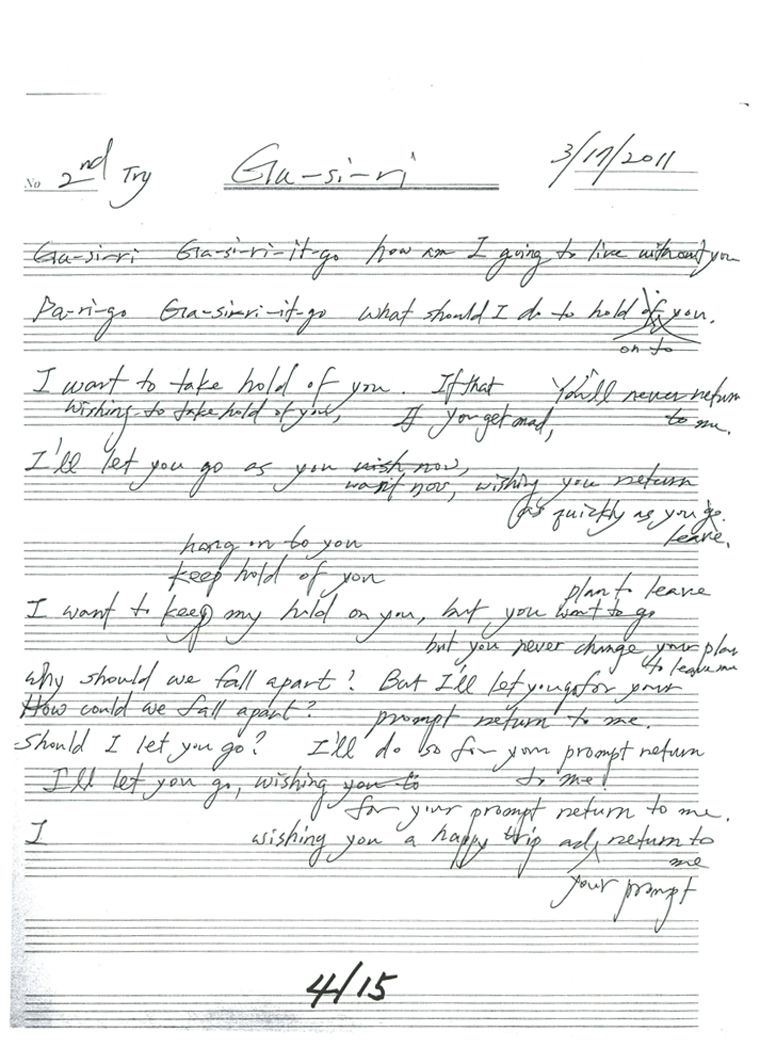 No 2nd Try Ga-si-ri 3/17/2011
Ga-si-ri Ga-si-ri-it-go how am I going to live without you
Pa-ri-go Ga-si-ri-it-go what should I do to hold of you.
on to
I want to take hold of you. If that You'll never return
wishing to take hold of you, If you get mad, to me.
I'll let you go as you wish now,
want now, wishing you return
as quickly as you go.
leave.
hang on to you
keep hold of you
plan to leave
I want to keep my hold on you, but you want to go
but you never change your plan
to leave me
Why should we fall apart? But I'll let you go for your
How could we fall apart? prompt return to me.
Should I let you go? I'll do so for your prompt return
I'll let you go, wishing you to to me!
for your prompt return to me.
I wishing you a happy trip and return to
me
your prompt
4/15